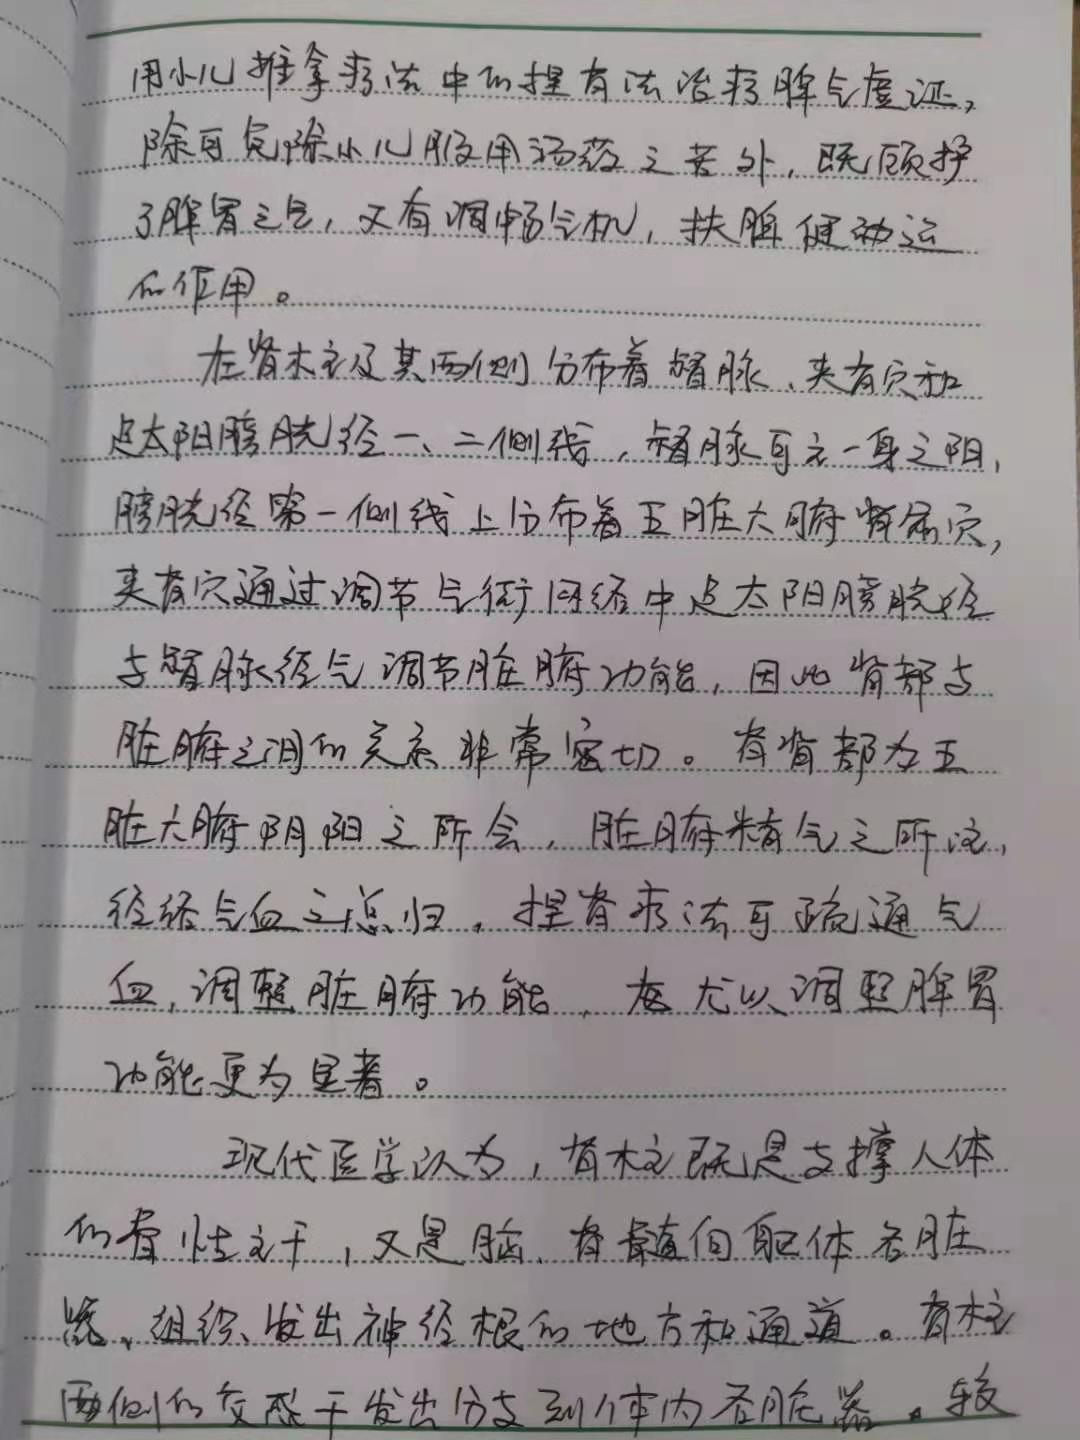 用小儿推拿疗法中的捏脊法治疗脾气虚证,
除可免除小儿服用汤药之苦外, 既顾护
了脾胃之气, 又有调畅气机, 扶脾健动运
的作用。
在脊柱及其两侧分布着督脉、夹脊穴和
足太阳膀胱经一、二侧线, 督脉可主一身之阳,
膀胱经第一侧线上分布着五脏六腑背俞穴,
夹脊穴通过调节气街网络中足太阳膀胱经
与督脉经气调节脏腑功能, 因此背部与
脏腑之间的关系非常密切。脊背部为五
脏六腑阴阳之所会, 脏腑精气之所注,
经络气血之总归, 捏脊疗法可疏通气
血, 调整脏腑功能, 尤以调整脾胃
功能更为显著。
现代医学认为, 脊柱既是支撑人体
的骨性支干, 又是脑、脊髓向躯体各脏
器、组织发出神经根的地方和通道。脊柱
两侧的交感干发出分支到体内各脏器。较